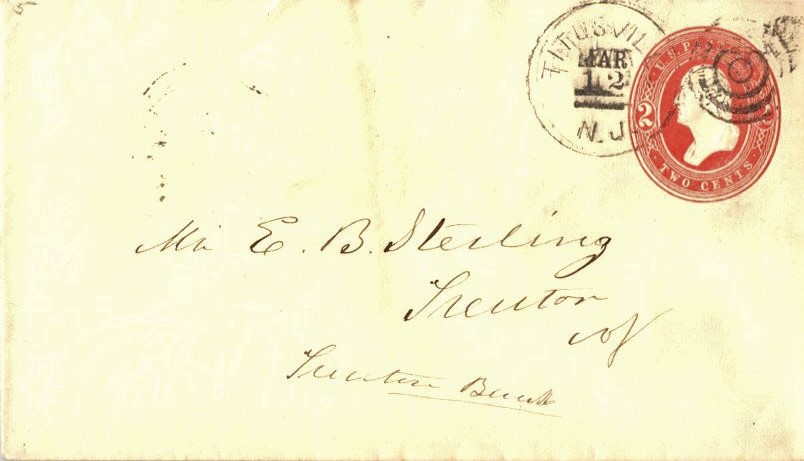 5
TITUSVIL
MAR
12
N.J.
U.S. P
2
TWO CENTS
Mr E. B. Sterling
Trenton
NJ
Trenton Bank